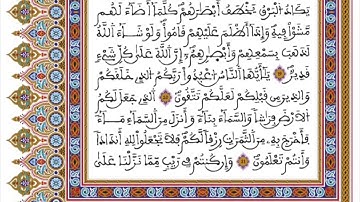 يَكَادُ الْبَرْقُ يَخْطَفُ أَبْصَارَهُمْ كُلَّمَا أَضَاءَ لَهُمْ
مَشَوْا فِيهِ وَإِذَا أَظْلَمَ عَلَيْهِمْ قَامُوا وَلَوْ شَاءَ اللَّهُ
لَذَهَبَ بِسَمْعِهِمْ وَأَبْصَارِهِمْ إِنَّ اللَّهَ عَلَىٰ كُلِّ شَيْءٍ
قَدِيرٌ يَا أَيُّهَا النَّاسُ اعْبُدُوا رَبَّكُمُ الَّذِي خَلَقَكُمْ
وَالَّذِينَ مِنْ قَبْلِكُمْ لَعَلَّكُمْ تَتَّقُونَ الَّذِي جَعَلَ لَكُمُ
الْأَرْضَ فِرَاشًا وَالسَّمَاءَ بِنَاءً وَأَنْزَلَ مِنَ السَّمَاءِ مَاءً
فَأَخْرَجَ بِهِ مِنَ الثَّمَرَاتِ رِزْقًا لَكُمْ فَلَا تَجْعَلُوا لِلَّهِ أَنْدَادًا
وَأَنْتُمْ تَعْلَمُونَ وَإِنْ كُنْتُمْ فِي رَيْبٍ مِمَّا نَزَّلْنَا عَلَىٰ